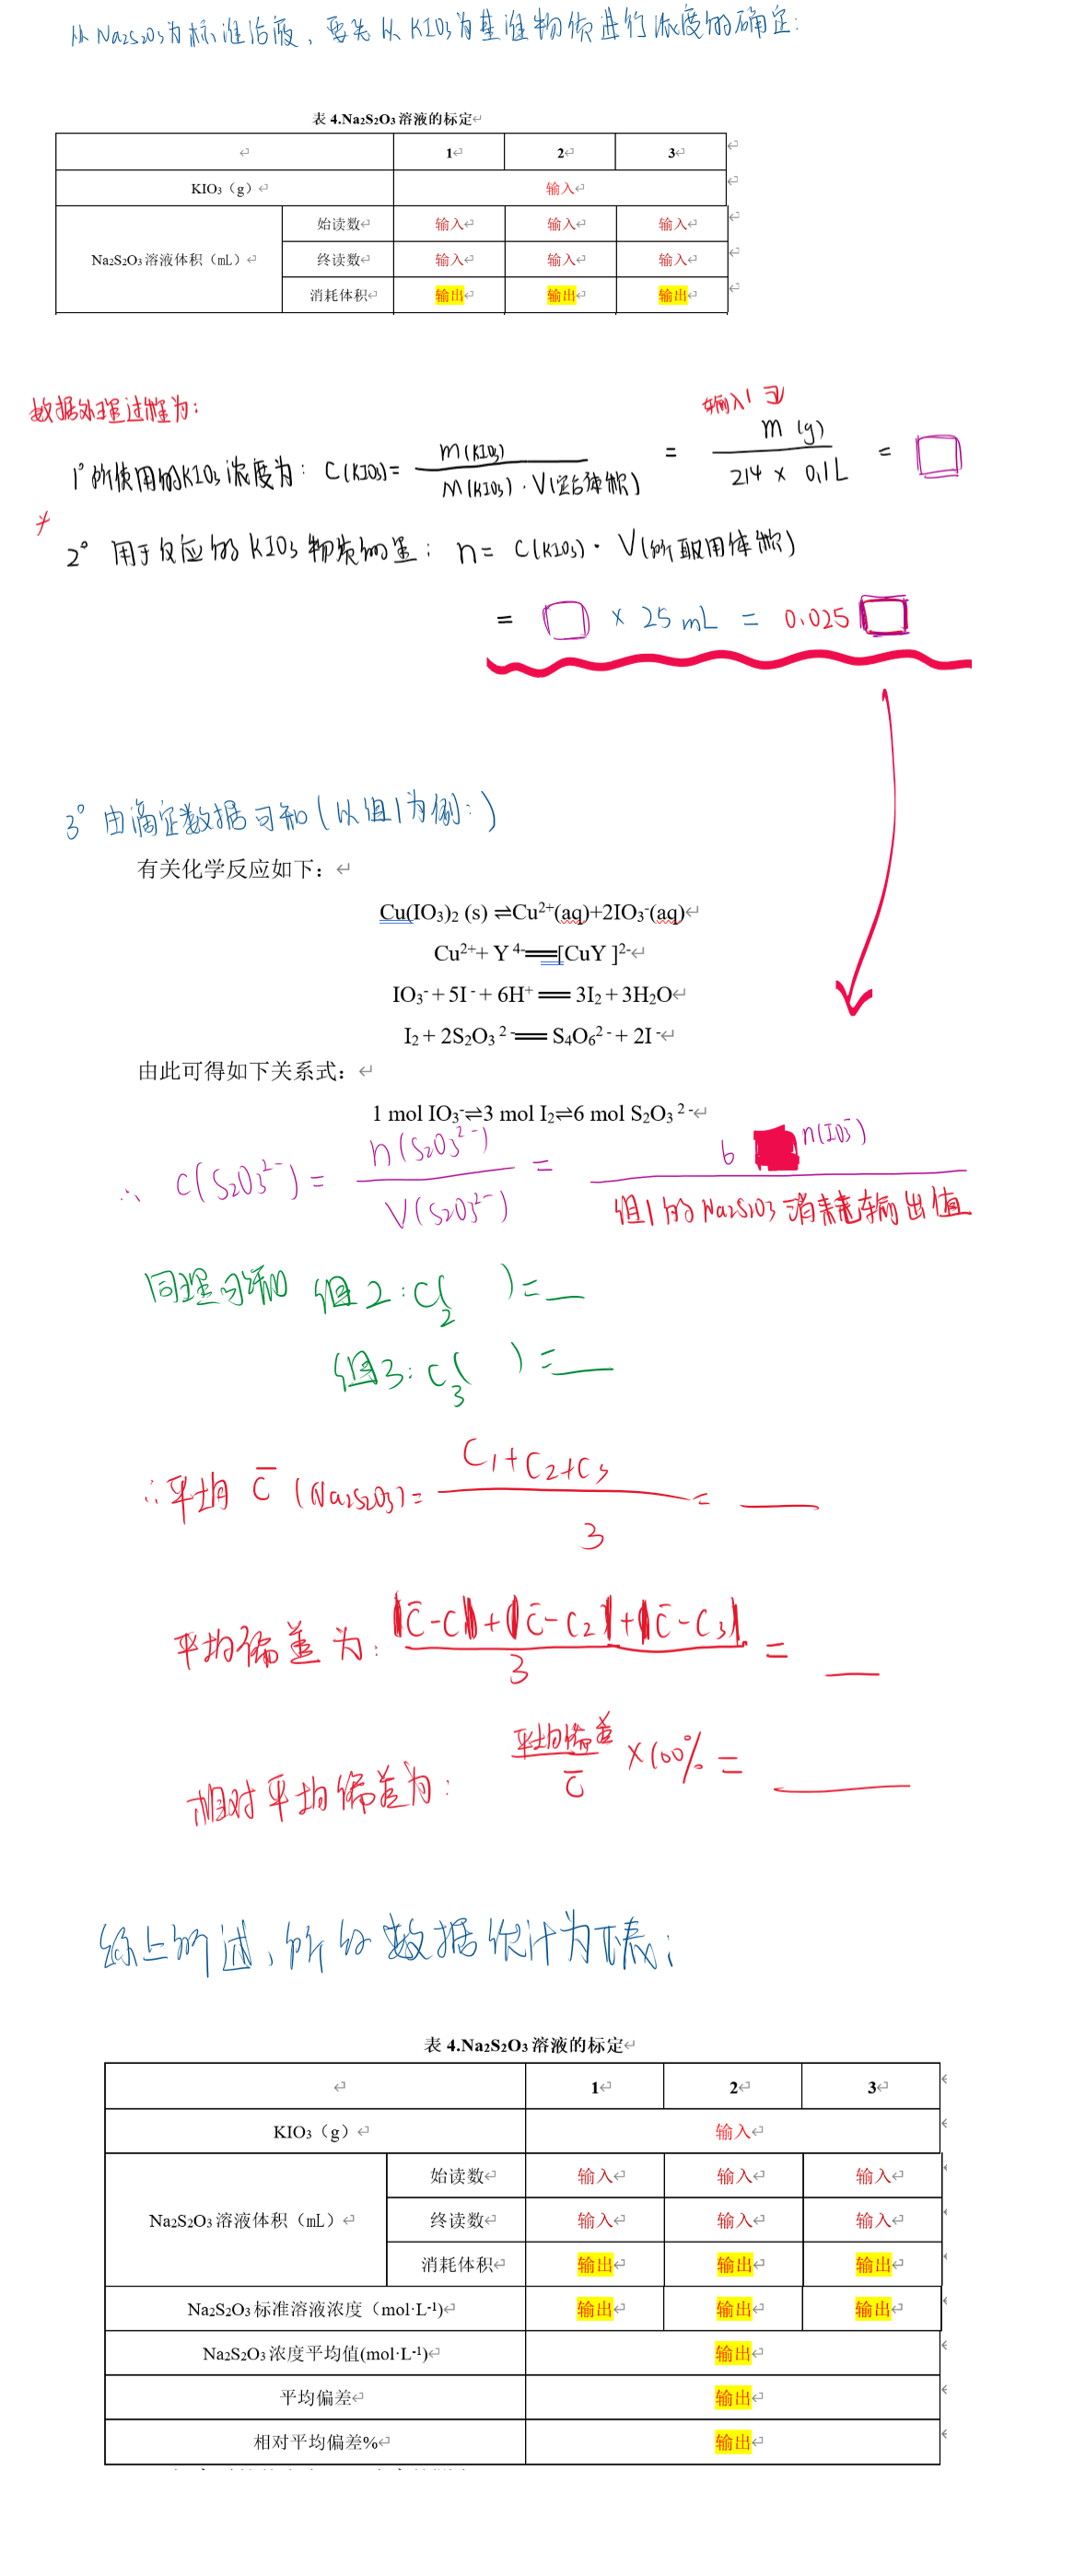 以Na2S2O3为标准溶液，要先以KIO3为基准物质进行浓度的确定：
表 4.Na₂S₂O₃ 溶液的标定
1 2 3
KIO₃（g） 输入
Na₂S₂O₃ 溶液体积（mL） 始读数 输入 输入 输入
终读数 输入 输入 输入
消耗体积 输出 输出 输出
数据处理过程为：
1° 所使用的KIO3浓度为：C(KIO3)= m(KIO3) / M(KIO3)·V(定容体积) = 输入1 m (g) / 214 × 0.1L = □
2° 用于反应的KIO3物质的量：n= C(KIO3)·V(所取用体积)
= □ × 25 mL = 0.025 □
3° 由滴定数据可知(以组1为例：)
有关化学反应如下：
Cu(IO₃)₂ (s) ⇌Cu²⁺(aq)+2IO₃⁻(aq)
Cu²⁺+ Y ⁴⁻══[CuY ]²⁻
IO₃⁻+ 5I ⁻+ 6H⁺ ══ 3I₂ + 3H₂O
I₂ + 2S₂O₃ ²⁻══ S₄O₆²⁻+ 2I⁻
由此可得如下关系式：
1 mol IO₃⁻⇌3 mol I₂⇌6 mol S₂O₃ ²⁻
∴ C(S₂O₃²⁻)= n(S₂O₃²⁻) / V(S₂O₃²⁻) = 6 n(IO₃⁻) / 组1的Na2S2O3消耗输出值
同理可得知 组2：C₂( )=__
组3：C₃( )=__
∴平均 C̄ (Na2S2O3)= C₁+C₂+C₃ / 3 = __
平均偏差为：|C̄-C₁|+|C̄-C₂|+|C̄-C₃| / 3 = __
相对平均偏差为：平均偏差 / C̄ ×100% = __
综上所述，所有数据统计为下表：
表 4.Na₂S₂O₃ 溶液的标定
1 2 3
KIO₃（g） 输入
Na₂S₂O₃ 溶液体积（mL） 始读数 输入 输入 输入
终读数 输入 输入 输入
消耗体积 输出 输出 输出
Na₂S₂O₃ 标准溶液浓度（mol·L⁻¹） 输出 输出 输出
Na₂S₂O₃ 浓度平均值(mol·L⁻¹) 输出
平均偏差 输出
相对平均偏差% 输出